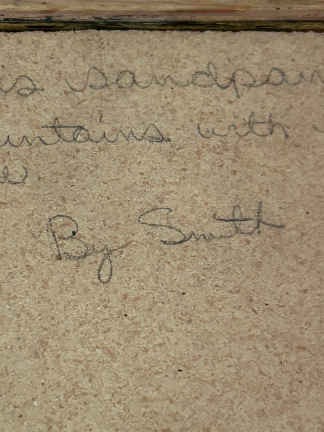 is sandpain
untains with
By Smith